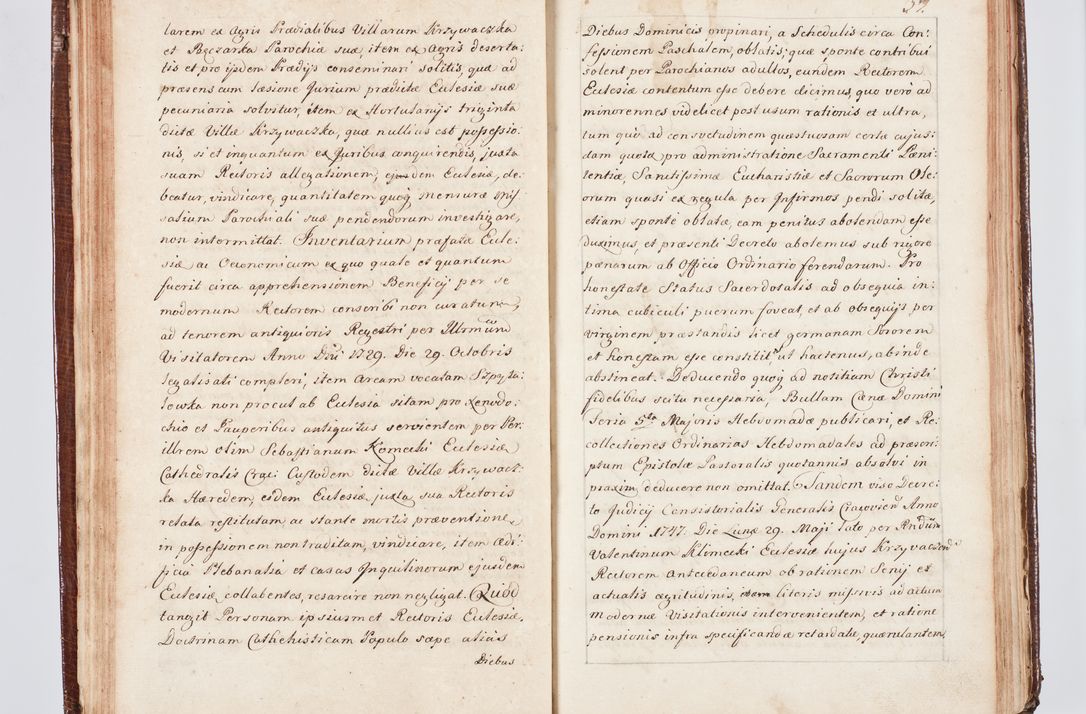 larem ex Agris Prædialibus Villarum Krzywaczka
et Bęczarka Parochiæ suæ, item ex Agris deserta:
tis et pro ijsdem Prædijs conseminari solitis, quæ ad
præsens cum læsione Jurium prædictæ Eulesiæ suæ
pecuniaria solvitur, item ex Hortulanijs triginta
dictæ Villæ Krzywaczka, quæ nullius est possessio:
nis, si et inquantum ex Juribus conquirendis, juxta
suam Rectoris allegationem, ejusdem Eulesiæ, de:
beatur, vindicare, quantitatem quoq mensuræ Mis:
salium Parochiali suæ pendendorum investigare,
non intermittat. Inventarium præfatæ Eule:
siæ ac Oeconomicum ex quo quale et quantum
fuerit circa apprehensionem Beneficij per se
modernum Rectorem conscribi non curatum,
ad tenorem antiquioris Regestri per Illrmum
Visitatorem Anno Dni 1729. Die 29. Octobris
legalisati compleri, item Aream vocatam Szpyta:
lowka non procul ab Eulesia sitam pro Xenodo:
chio et Pauperibus antiquitus servientem per Per:
illrem olim Sebastianum Komecki Eulesiæ
Cathedralis Crac: Custodem dictæ Villæ Krzywacz:
ka Hæredem, eidem Eulesiæ, juxta sua Rectoris
relata restitutam, ac stante mortis præventione,
in possessionem non traditam, vindicare, item Ædi:
ficia Plebanalia et casas Inquilinorum ejusdem
Eulesiæ collabentes, resarcire non negligat. Quod
tangit Personam ipsiusmet Rectoris Eulesiæ,
Doctrinam Cathechisticam Populo sæpe aliàs
Diebus
37.
Diebus Dominicis propinari, a Schedulis circa Con:
fessionem Paschalem, oblatis, quæ sponte contribui
solent per Parochianos adultos, eundem Rectorem
Eulesiæ contentum esse debere dicimus, quo verò ad
minorennes videlicet post usum rationis et ultra,
tum quò ad consvetudinem quæstuosam certæ cujus:
dam quotæ pro administratione Sacramenti Pæni:
tentiæ, Sanctissimæ Eucharistiæ et Sacrorum Ole:
orum quasi ex regula per Infirmos pendi solitæ,
etiam spontè oblatæ, eam penitus abolendam esse
duximus, et præsenti Decreto abolemus sub rigore
pænarum ab Officio Ordinario ferendarum. Pro
honestate Status Sacerdotalis ad obsequia in:
tima cubiculi puerum foveat, et ab obsequijs per
virginem præstandis licet germanam Sororem
et honestam esse constitit, ut hactenus, abinde
abstineat. Deducendo quoq ad notitiam Christi
fidelibus scitu necessaria, Bullam Cænæ Domini
Feria 5ta Majoris Hebdomadæ publicari, et Re:
collectiones Ordinarias Hebdomadales ad præscri:
ptum Epistolæ Pastoralis quotannis absolvi in
praxim, deducere non omittat. Tandem viso Decre:
to Judicij Consistorialis Generalis Cracovien Anno
Domini 1747. Die Lunæ 29. Maji lato per Rndum
Valentinum Klimecki Eulesiæ hujus Krzywaczen
Rectorem antecedaneum ob rationem Senij et
actualis ægritudinis, literis missivis ad actum
modernæ Visitationis intervenientem, et ratione
pensionis infra specificandæ retardatæ, quærulantem,